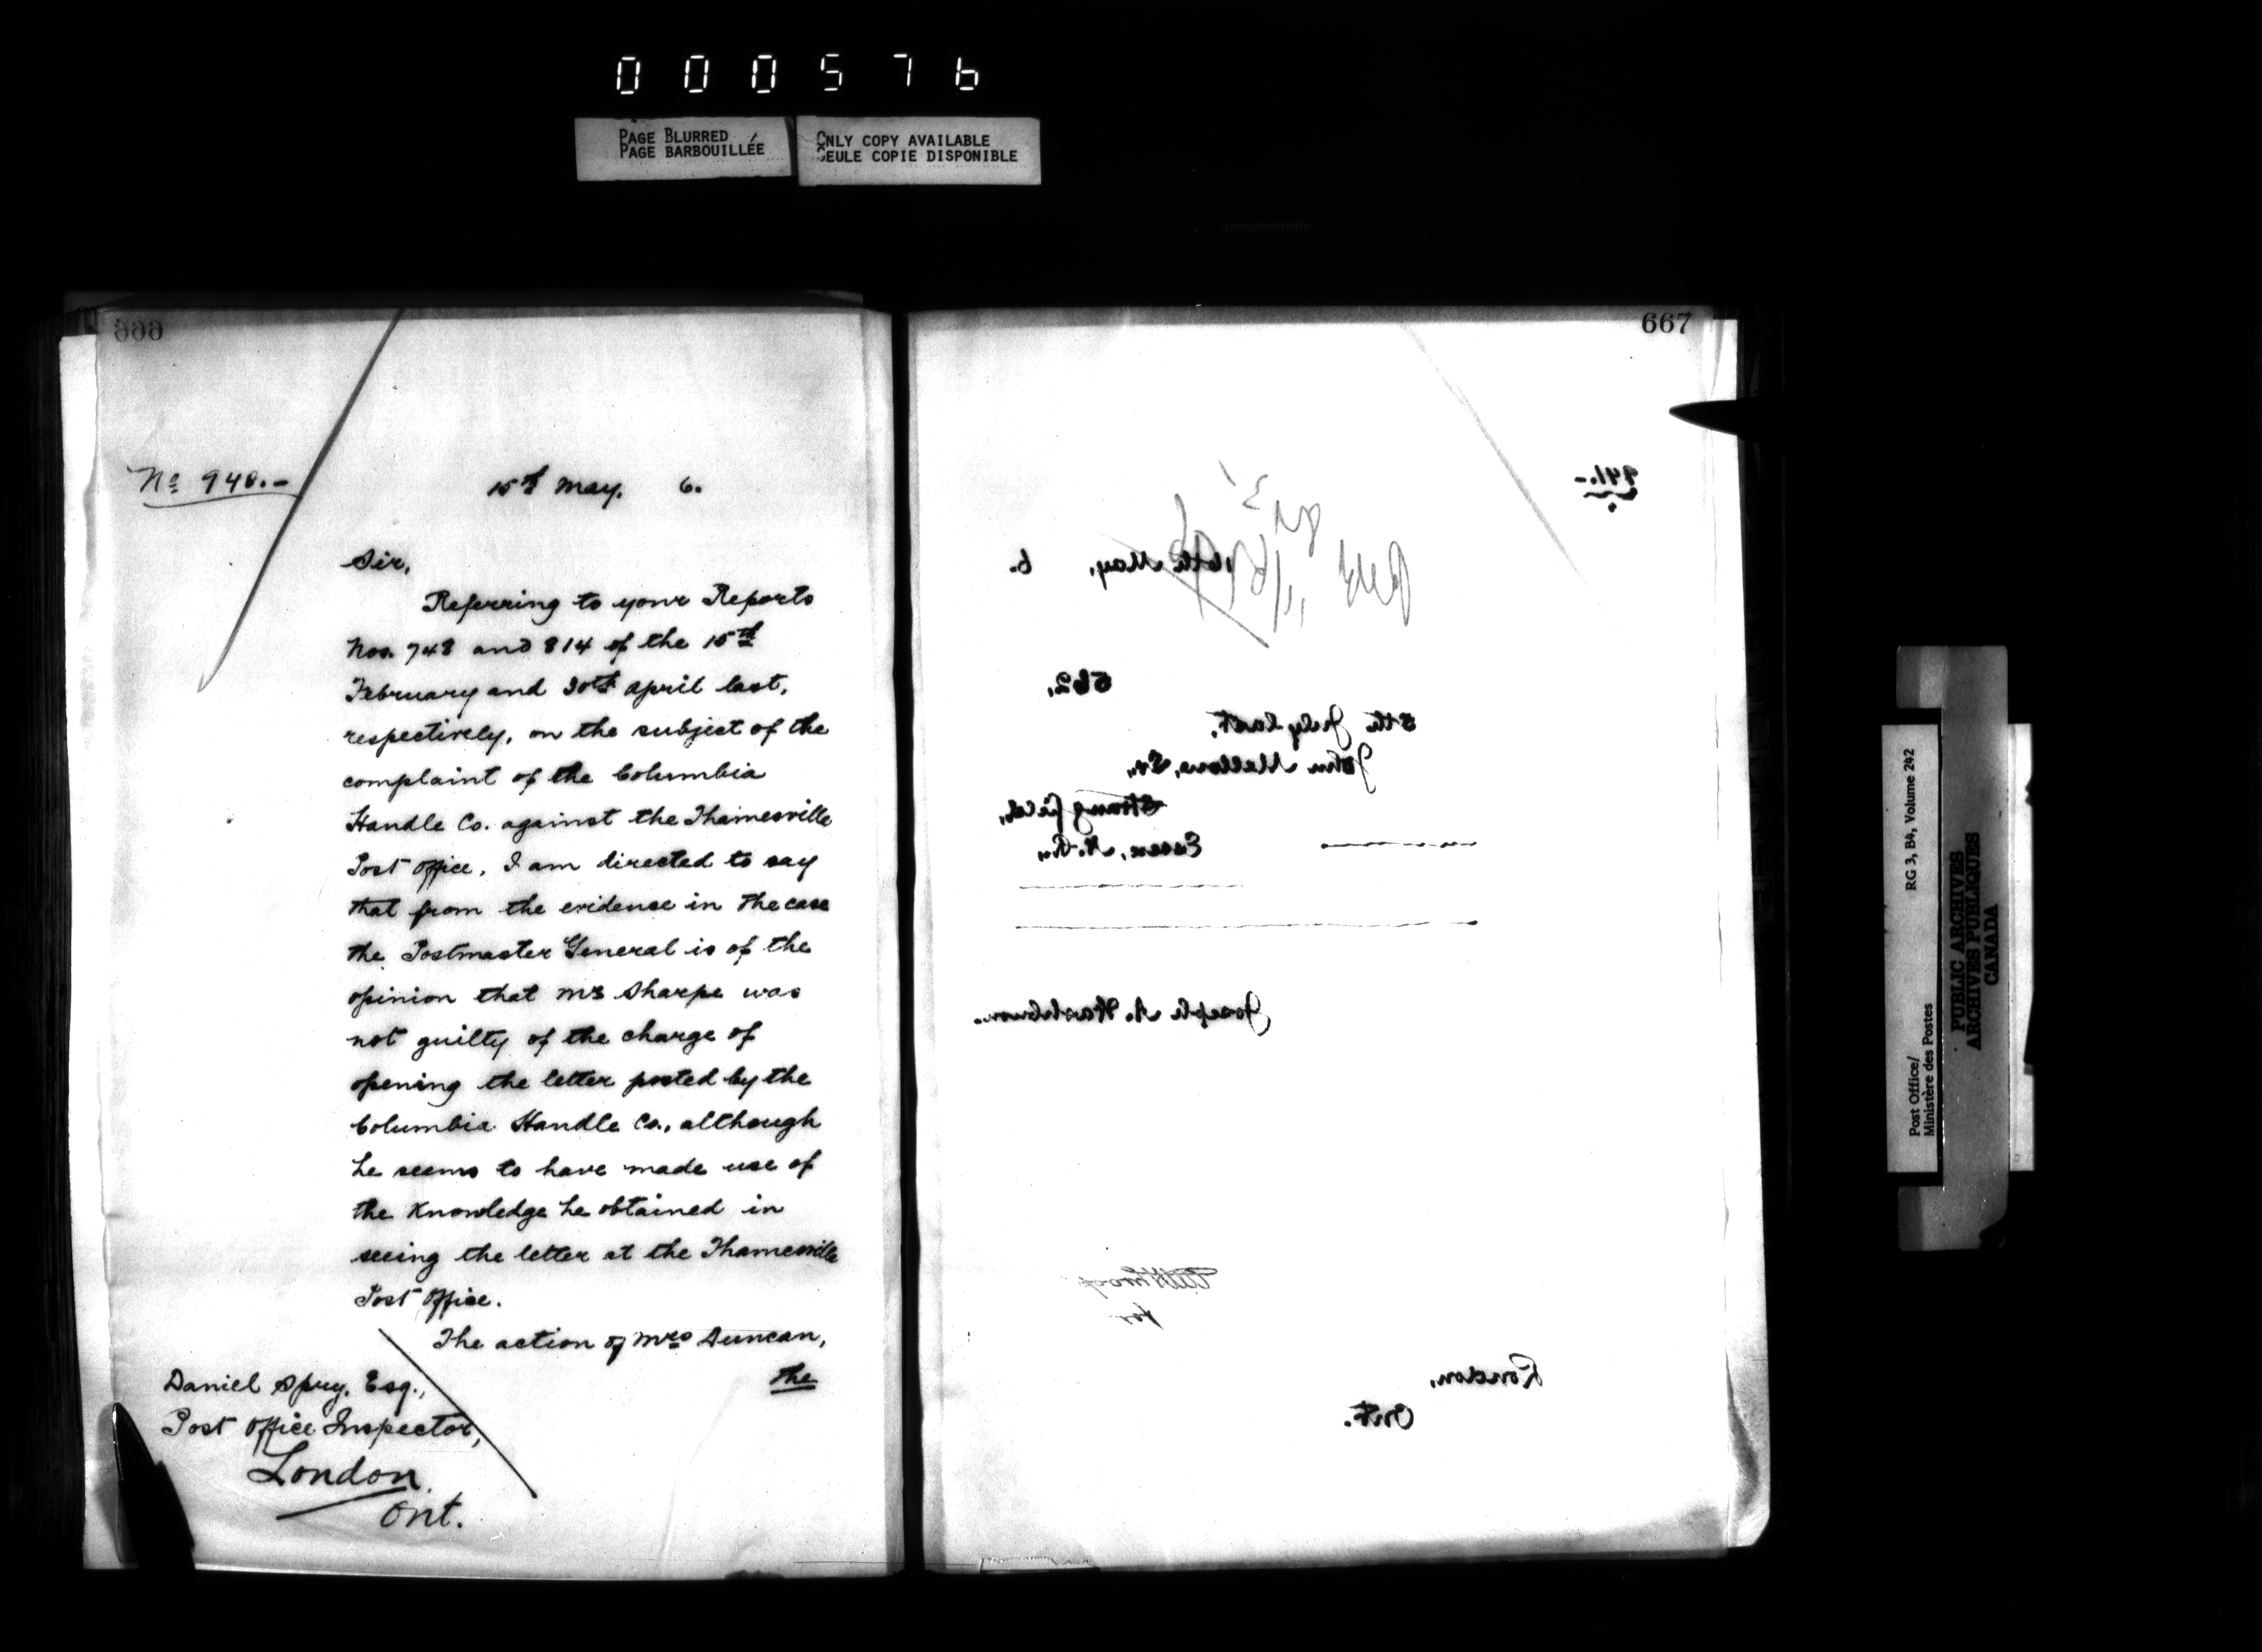 000576
PAGE BLURRED
PAGE BARBOUILLÉE
ONLY COPY AVAILABLE
SEULE COPIE DISPONIBLE
666
No 940.-
15th May. 6.
Sir,
Referring to your Reports
Nos. 748 and 814 of the 15th
February and 30th April last,
respectively, on the subject of the
complaint of the Columbia
Handle Co. against the Thamesville
Post Office, I am directed to say
that from the evidence in the case
the Postmaster General is of the
opinion that Mr Sharpe was
not guilty of the charge of
opening the letter posted by the
Columbia Handle Co., although
he seems to have made use of
the knowledge he obtained in
seeing the letter at the Thamesville
Post Office.
The action of Mrs Duncan,
the
Daniel Spry, Esq.,
Post Office Inspector,
London,
Ont.
667
941.-
16th May, 6.
562,
5th July last,
John Mellows, Sr.,
Strangfield,
Essex, N.R.,
Joseph A. Washburn.
for
London,
Ont.
Post Office/
Ministère des Postes
RG 3, B4, Volume 242
PUBLIC ARCHIVES
ARCHIVES PUBLIQUES
CANADA